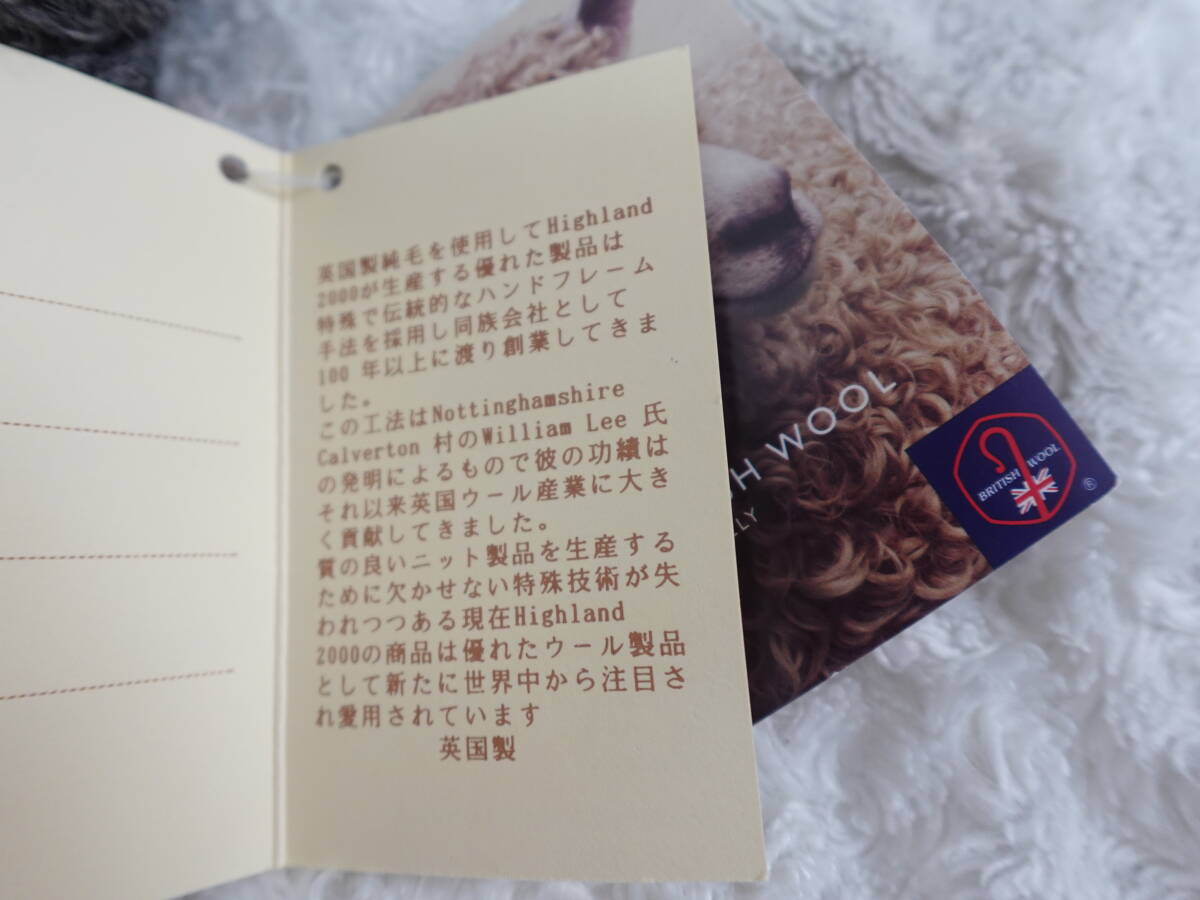 英国製純毛を使用してHighland
2000が生産する優れた製品は
特殊で伝統的なハンドフレーム
手法を採用し同族会社として
100 年以上に渡り創業してきま
した。
この工法はNottinghamshire
Calverton 村のWilliam Lee 氏
の発明によるもので彼の功績は
それ以来英国ウール産業に大き
く貢献してきました。
質の良いニット製品を生産する
ために欠かせない特殊技術が失
われつつある現在Highland
2000の商品は優れたウール製品
として新たに世界中から注目さ
れ愛用されています
英国製
WOOL
BRITISH WOOL
®